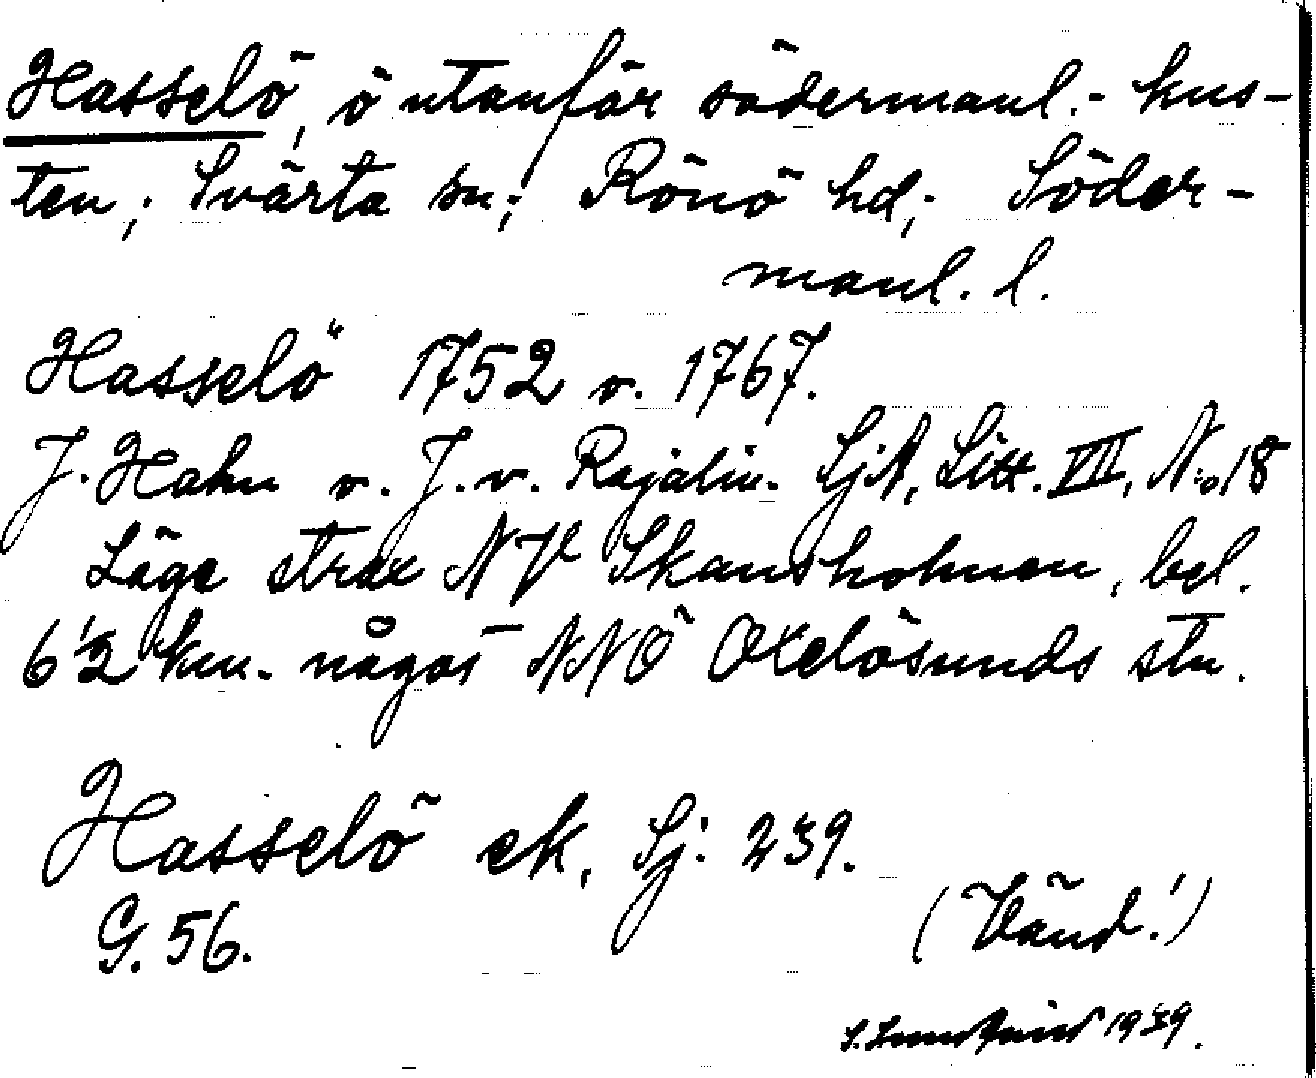 Hasselö, ö utanför södermanl.- kus-
ten; Svärta sn; Rönö hd; Söder-
manl. l.
Hasselö 1752 o. 1767.
J. Hahn o. J. v. Rajalin. SjA, Litt. VII, No 18
Läge strax NV Skansholmen, bel.
6 1/2 km. något NNO Oxelösunds stn.
Hasselö ek. Sj: 239.
G. 56.
(Vänd!)
S. Lundqvist 1939.